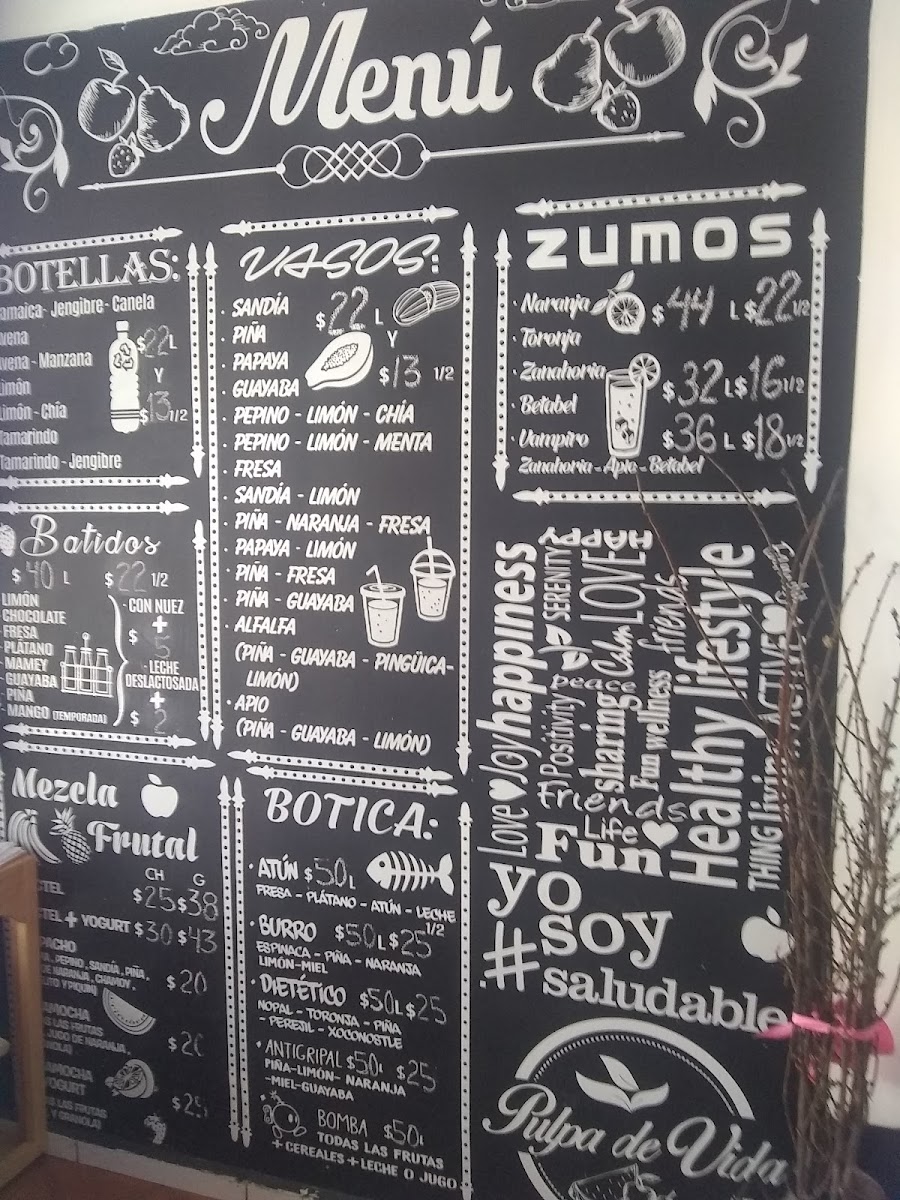 Menú
BOTELLAS:
Jengibre - Canela
- Manzana
- Chía
Tamarindo
Tamarindo - Jengibre
$22 L
Y
$13 1/2
VASOS:
· SANDÍA
· PIÑA
· PAPAYA
· GUAYABA
· PEPINO - LIMÓN - CHÍA
· PEPINO - LIMÓN - MENTA
· FRESA
· SANDÍA - LIMÓN
· PIÑA - NARANJA - FRESA
· PAPAYA - LIMÓN
· PIÑA - FRESA
· PIÑA - GUAYABA
· ALFALFA
(PIÑA - GUAYABA - PINGÜICA-
LIMÓN)
· APIO
(PIÑA - GUAYABA - LIMÓN)
$22 L
Y
$13 1/2
ZUMOS
· Naranja $44 L $22 1/2
· Toronja
· Zanahoria $32 L $16 1/2
· Betabel
· Vampiro $36 L $18 1/2
Zanahoria - Apio - Betabel
Batidos
$40 L $22 1/2
LIMÓN
CHOCOLATE
- FRESA
- PLÁTANO
- MAMEY
- GUAYABA
- PIÑA
- MANGO (TEMPORADA)
· CON NUEZ
+
$ 5
· LECHE
DESLACTOSADA
+
$ 2
Mezcla
Frutal
CH G
$25 $38
+ YOGURT $30 $43
PEPINO, SANDÍA, PIÑA,
DE NARANJA, CHAMOY,
Y PIQUIN) $20
LAS FRUTAS
DE NARANJA,
YOGURT
LAS FRUTAS
Y GRANOLA)
BOTICA:
· ATÚN $50 L
FRESA - PLÁTANO - ATÚN - LECHE
· BURRO $50 L $25 1/2
ESPINACA - PIÑA - NARANJA
LIMÓN-MIEL
· DIETÉTICO $50 L $25
NOPAL - TORONJA - PIÑA
- PEREJIL - XOCONOSTLE
· ANTIGRIPAL $50 L $25
PIÑA-LIMÓN- NARANJA
-MIEL-GUAYABA
BOMBA $50 L
TODAS LAS FRUTAS
+ CEREALES + LECHE O JUGO
HAPPY
Love Joy happiness
Positivity SERENITY
LOVE
Calm
peace
sharing
friends
Fun wellness
Healthy lifestyle
THING living ACTIVE
Friends
Life
Fun
yo
soy
#saludable
Pulpa de Vida